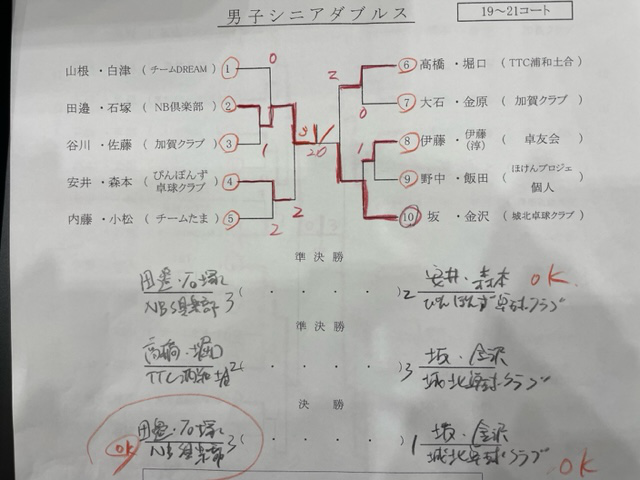 男子シニアダブルス
19～21コート
山根・白津（チームDREAM） ① 0
田邉・石塚（NB倶楽部） ②
谷川・佐藤（加賀クラブ） ③ 1
安井・森本（ぴんぽんず卓球クラブ） ④
内藤・小松（チームたま） ⑤ 2 2
⑥ 高橋・堀口（TTC浦和土合） 2
⑦ 大石・金原（加賀クラブ） 0
⑧ 伊藤・伊藤（淳）（卓友会） 1
⑨ 野中・飯田（ほけんプロジェ個人）
⑩ 坂・金沢（城北卓球クラブ）
準決勝
田邉・石塚 NB倶楽部 3（・・・・）2 安井・森本 ぴんぽんず卓球クラブ OK
準決勝
高橋・堀口 TTC浦和土合 2（・・・・）3 坂・金沢 城北卓球クラブ
決勝
OK 田邉・石塚 NB倶楽部 3（・・・・）1 坂・金沢 城北卓球クラブ OK